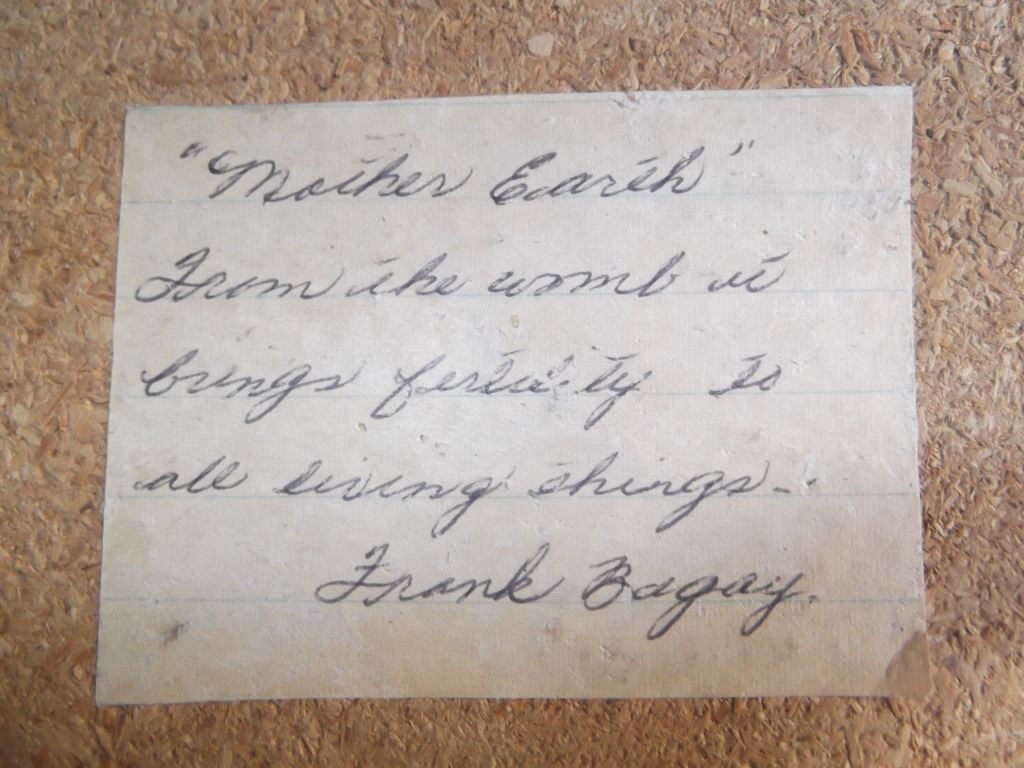 "Mother Earth"
From the womb it
brings fertility to
all living things -.
Frank Bagay.